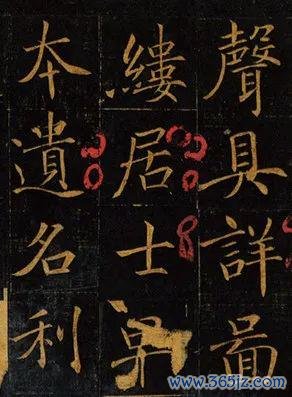 聲具詳啚
縷居士早
本遺名利
www.365jz.com